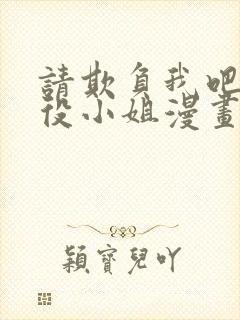 請欺負我吧
役小姐漫畫
穎寶兒吖